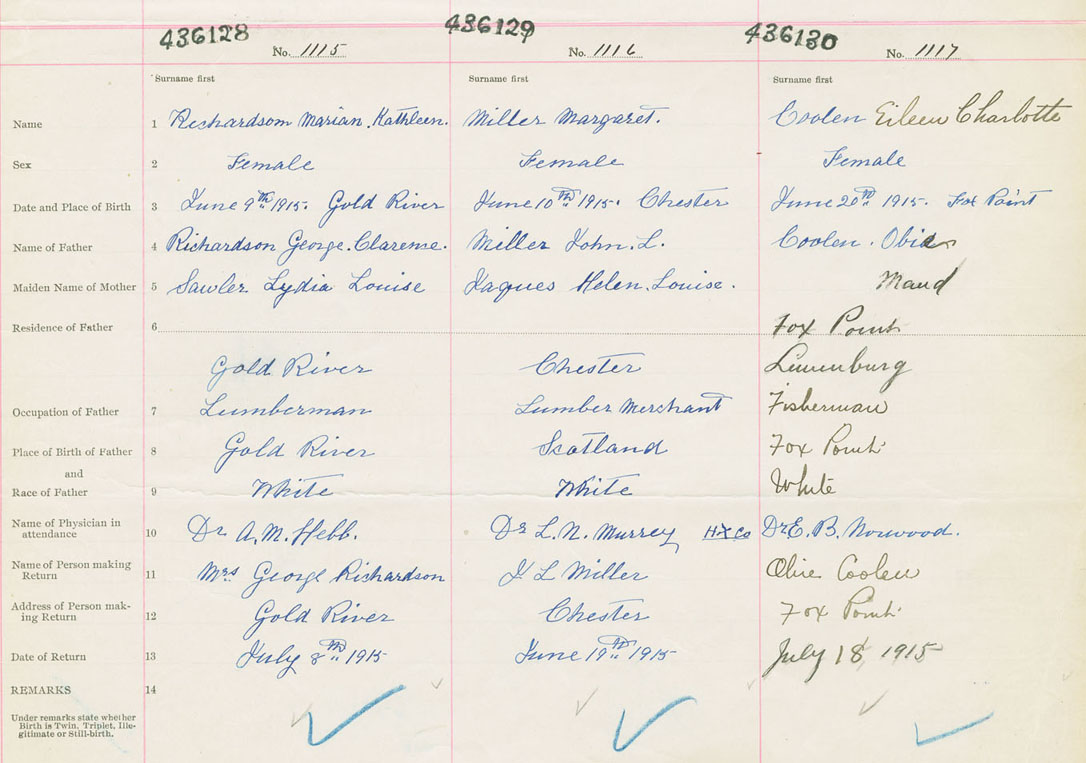 436128 436129 436130
No. 1115 No. 1116 No. 1117
Surname first Surname first Surname first
Name 1 Richardsom Marian. Kathleen. Miller Margaret. Coolen Eileen Charlotte
Sex 2 Female Female Female
Date and Place of Birth 3 June 9th 1915. Gold River June 10th 1915. Chester June 20th 1915. Fox Point
Name of Father 4 Richardson George. Clarense. Miller John. L. Coolen.
Maiden Name of Mother 5 Sawler Lydia Louise Jaques Helen. Louise. Maud
Residence of Father 6 Fox Point
Gold River Chester Lunenburg
Occupation of Father 7 Lumberman Lumber Merchant Fisherman
Place of Birth of Father 8 Gold River Scotland Fox Point
and
Race of Father 9 White White White
Name of Physician in
attendance 10 Dr A. M. Hebb. Dr L. N. Murrey HX Co Dr E. B. Norwood.
Name of Person making
Return 11 Mrs George Richardson J L Miller Coolen
Address of Person mak-
ing Return 12 Gold River Chester Fox Point
Date of Return 13 July 8th 1915 June 19th 1915 July 18, 1915
REMARKS 14
Under remarks state whether
Birth is Twin, Triplet, Ille-
gitimate or Still-birth.